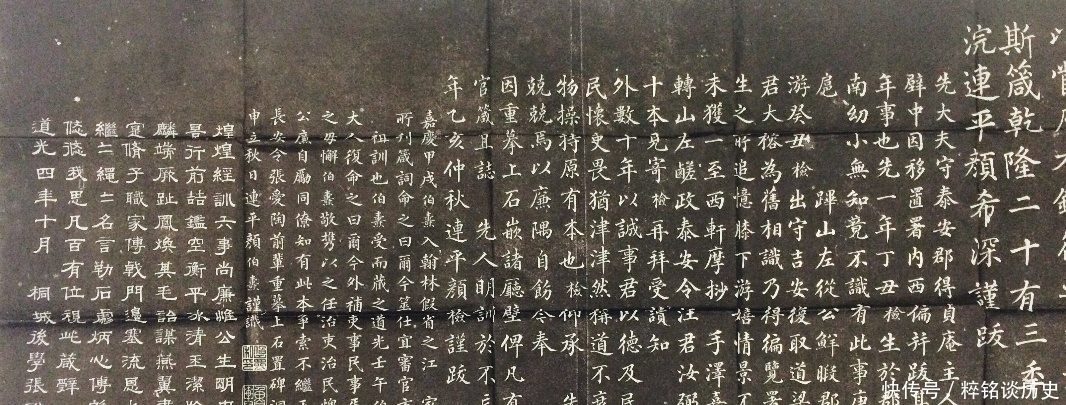 斯箴乾隆二十有三季
浣連平顏希深謹跋
先大夫守泰安郡得貞庵主人
壁中因移置署内西偏并跋其
年事也先一年丁丑檢生於郡
南幼小無知竟不識有此事庚
扈 蹕山左從公鮮暇郡
游癸丑檢出守吉安復取道梁
君大榕為舊相識乃得徧覽署
生之所追憶膝下游嬉情景不
未獲一至西軒摩抄 手澤嘉
轉山左鹺政泰安令汪君汝弼
十本見寄檢再拜受讀知
外數十年以誠事君以德及民
民懷吏畏猶津津然稱道不衰
物操持原有本也檢仰承 先
兢兢焉以廉隅自飭今奉
因重摹上石嵌諸廳壁俾凡有
官箴且誌 先人明訓於不忘
年乙亥仲秋連平顏檢謹跋
嘉慶甲戌伯燾入翰林假省之江 家
所刊箴詞命之曰爾今筮仕宜審官方
祖訓也伯燾受而藏之道光壬午伯
大人復命之曰爾今外補吏事民事
之毋懈伯燾敬携以之任治吏治民惟
公廉自勵同僚知有此本爭索不繼
長安令張爰陶前輩重摹上石置碑洞
申立秋日連平顏伯燾謹識
煌煌經訓六事尚廉惟公生明
景行前喆鑑空衡平冰清玉潔
麟端厥趾鳳煥其毛詒謀燕翼
甯脩子職家傳戟門邊塞流恩
繼二繩二名言勒石 炳心傳
悠悠我思凡百有位視此箴辭
道光四年十月 桐城後學張
快传号／粹铭谈历史